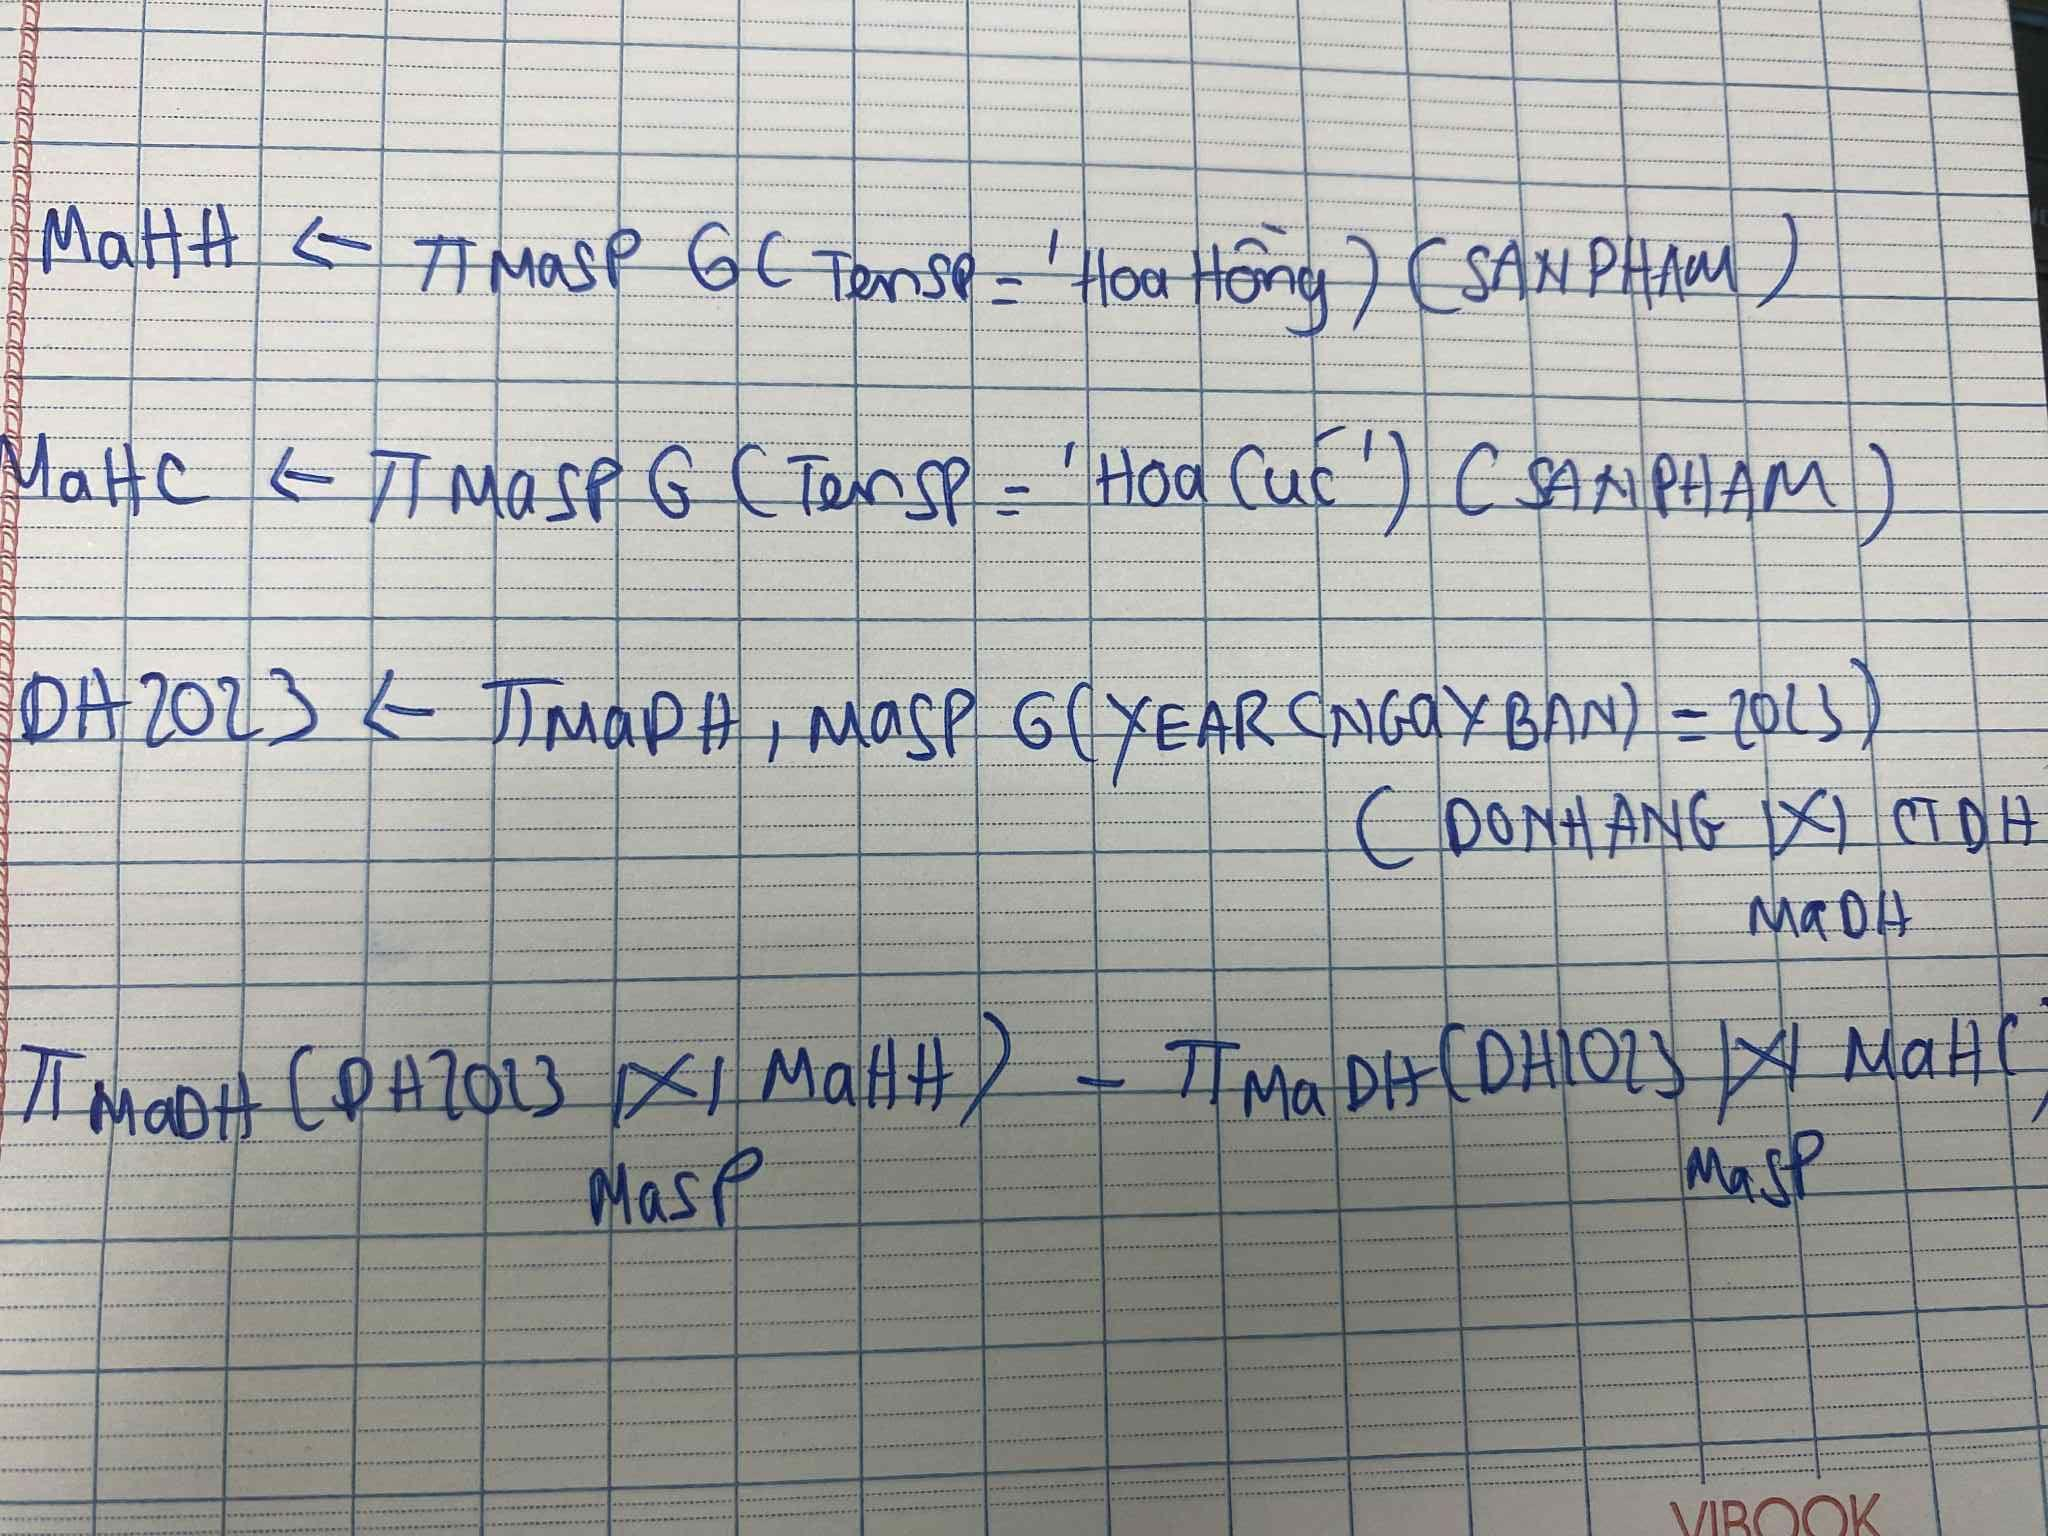 MaHH ← π MaSP σ( TenSP = 'Hoa Hồng) (SANPHAM)
MaHC ← π MaSP σ (TenSP = 'Hoa Cúc') (SANPHAM)
DH2023 ← π MaDH, MaSP σ(YEAR(NGaYBAN) = 2023)
( DONHANG ⋈ CTDH
MaDH
π MaDH (DH2023 ⋈ MaHH) - π MaDH (DH2023 ⋈ MaHC)
MaSP MaSP
VIBOOK